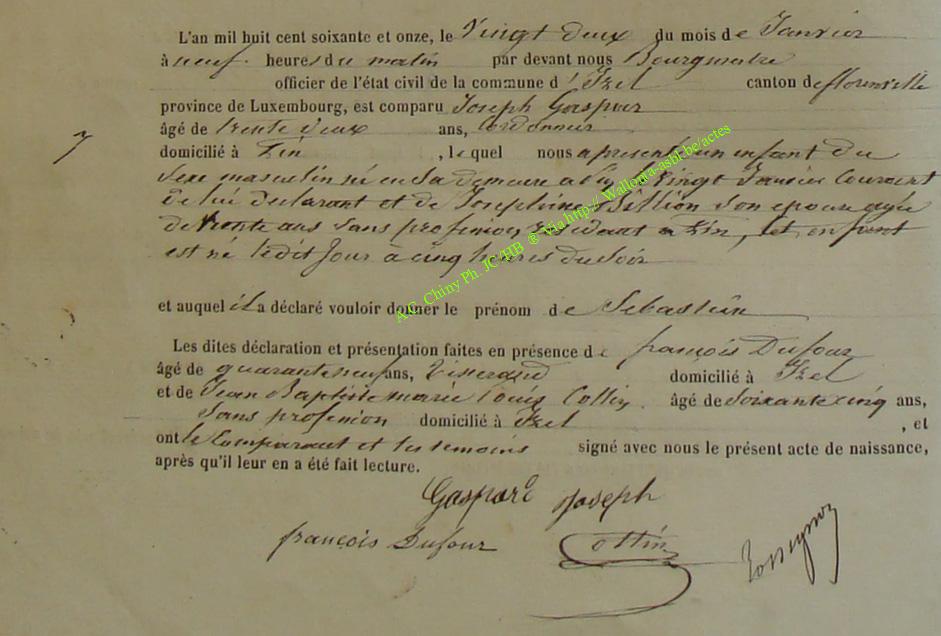 L'an mil huit cent soixante et onze, le Vingt deux du mois de Janvier
à neuf heures du matin par devant nous Bourgmestre
officier de l'état civil de la commune d'Izel canton de florenville
province de Luxembourg, est comparu Joseph Gaspar
âgé de trente deux ans, Cordonnier
7
domicilié à Pin, lequel nous a présenté un enfant du
Sexe masculin né en Sa demeure à Pin le Vingt Janvier Courant
de lui déclarant et de Joséphine Billion Son épouse agée
de trente ans Sans profession résidant à Pin, cet enfant
est né ledit Jour à cinq heures du Soir
et auquel il a déclaré vouloir donner le prénom de Sébastien
Les dites déclaration et présentation faites en présence de françois Dufour
âgé de quarante neuf ans, Tisserand domicilié à Izel
et de Jean Baptiste marie Louis Collin âgé de Soixante cinq ans,
Sans profession domicilié à Izel, et
ont le Comparant et les témoins signé avec nous le présent acte de naissance,
après qu'il leur en a été fait lecture.
Gaspard Joseph
françois Dufour Collin Rossignon
A.G. Chiny Ph. JC 4HB ® Via http:// Wallonia-asbl.be/actes